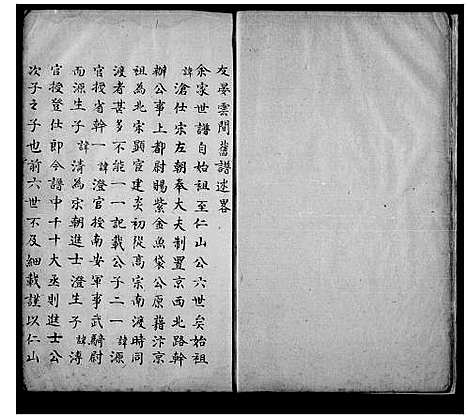 友晏雲間舊譜述畧
余家世譜自始祖至仁山公六世矣始祖
諱滄仕宋左朝奉大夫制置京西北路幹
辦公事上都尉賜紫金魚袋公原籍汴京
祖為北宋顯宦建炎初從高宗南渡時同
渡者甚多不能一一記載公子二一諱源
官授省幹一諱澄官授南安軍事武尉
而源生子諱清為宋朝進士澄生子諱溥
官授登仕即今譜中千十大丞則進士公
次子之子也前六世不及細載謹以仁山